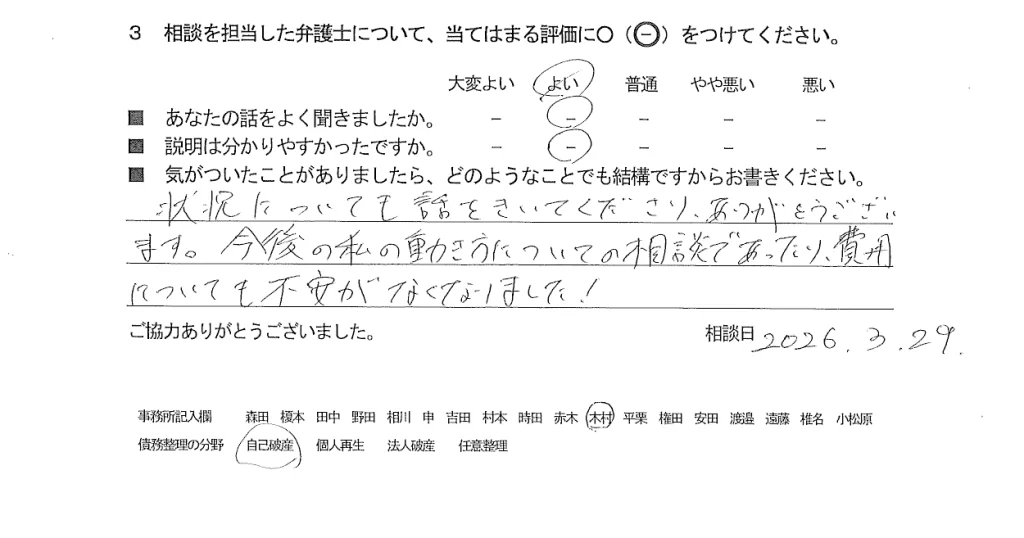 3 相談を担当した弁護士について、当てはまる評価に〇（㊀）をつけてください。
大変よい よい 普通 やや悪い 悪い
■ あなたの話をよく聞きましたか。 － － － － －
■ 説明は分かりやすかったですか。 － － － － －
■ 気がついたことがありましたら、どのようなことでも結構ですからお書きください。
状況についても話をきいてくださり、ありがとうござい
ます。今後の私の動き方についての相談であったり、費用
についても不安がなくなりました！
ご協力ありがとうございました。 相談日 2026.3.29.
事務所記入欄 森田 榎本 田中 野田 相川 申 吉田 村本 時田 赤木 木村 平栗 権田 安田 渡邉 遠藤 椎名 小松原
債務整理の分野 自己破産 個人再生 法人破産 任意整理